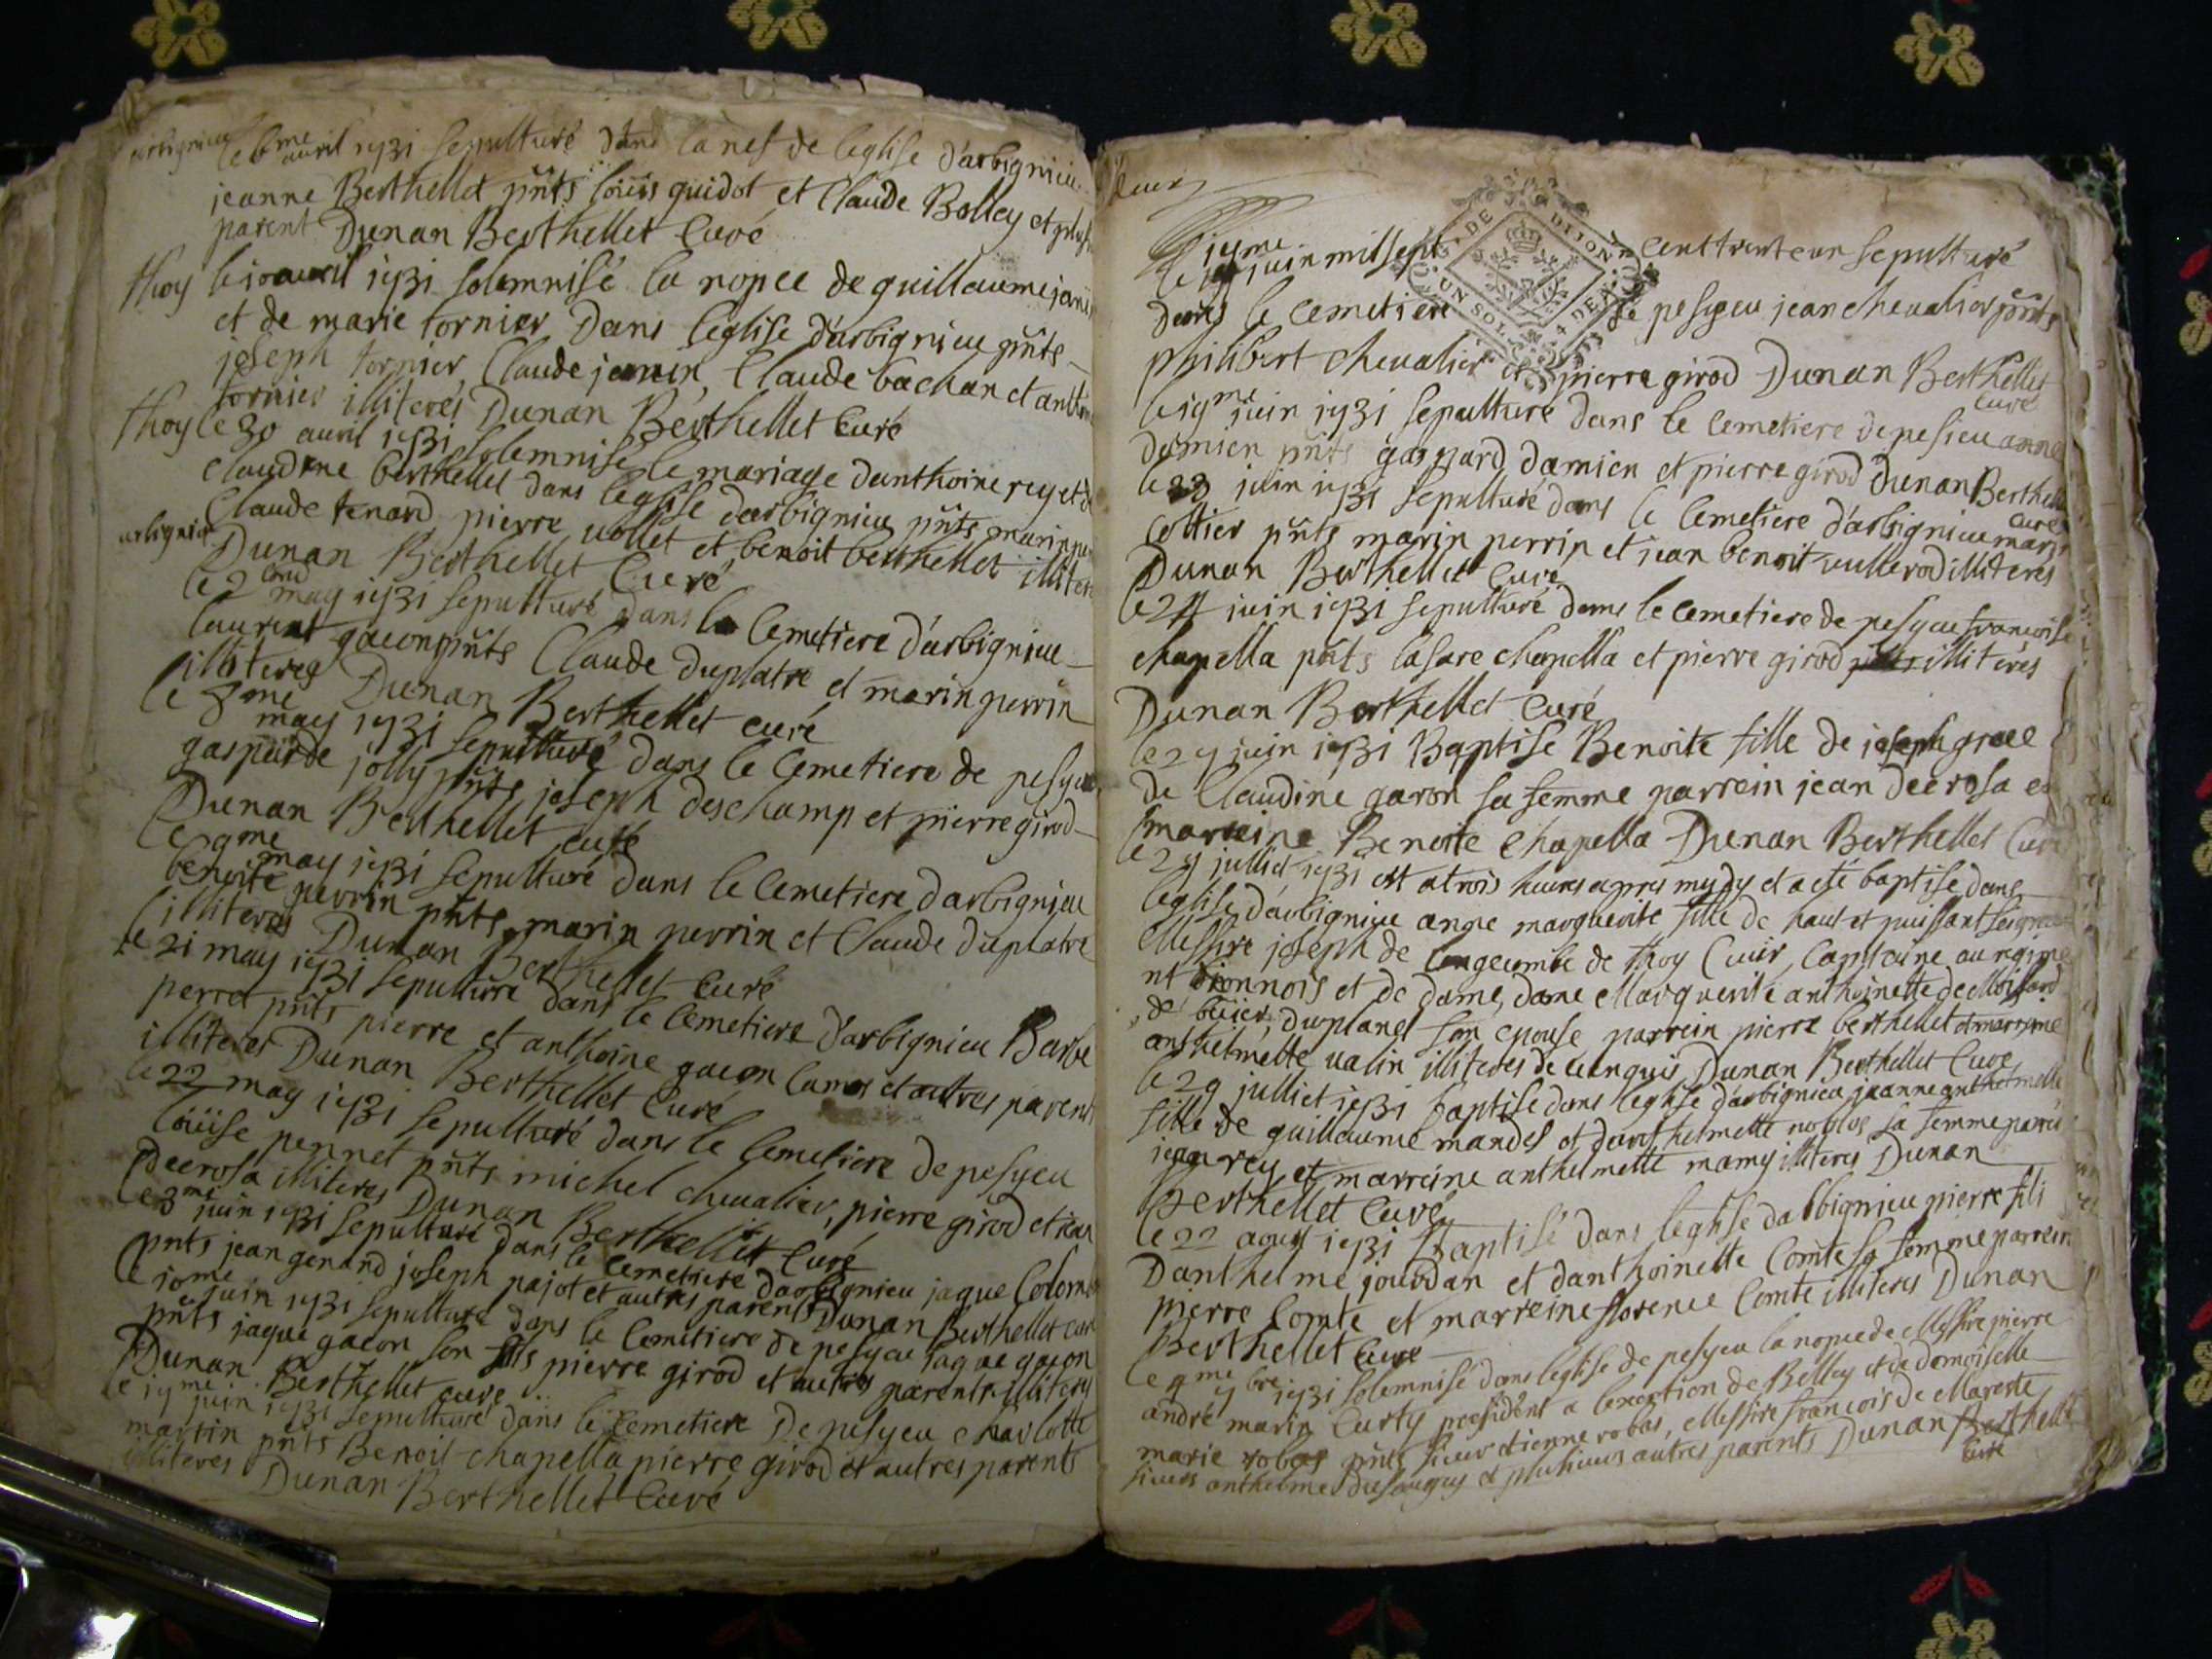 arbignieu
le 6me avril 1731 sepulturé dans la nef de leglise d'arbignieu
jeanne Berthellet pnts loüis guidot et Claude Bolley et plus
parent Dunan Berthellet Curé
thoy le 10 avril 1731 solemnisé la nopce de guillaume janin
et de marie tornier Dans leglise d'arbignieu pnts
joseph tornier Claude janin, Claude bachan et anth
tornier illiterés Dunan Berthellet Curé
thoy le 30 avril 1731 solemnisé le mariage d'anthoine rey et de
Claudine berthellet dans leglise d'arbignieu pnts marin per
Claude tenard pierre vollet et benoit berthellet illiter
arbignieu
Dunan Berthellet Curé
le 2 ond may 1731 sepulturé dans le Cemetiere d'arbignieu
laurent gacon pnts Claude duplatre et marin perrin
illiteres Dunan Berthellet curé
le 8me may 1731 sepulturé dans le Cemetiere de pesyeu
gasparde jolly pnts joseph deschamp et pierre girod
Dunan Berthellet curé
le 9me may 1731 sepulturé dans le Cemetiere d'arbignieu
benoite perrin pnts marin perrin et Claude duplatre
illiteres Dunan Berthellet Curé
le 21 may 1731 sepulturé dans le Cemetiere d'arbignieu Barbe
perret pnts pierre et anthoine gacon et autres parents
illiteres Dunan Berthellet Curé
le 22 may 1731 sepulturé dans le Cemetiere de pesyeu
loüise pennet pnts michel chevalier, pierre girod et jean
decrosa illiteres Dunan Berthellet Curé
le 3me juin 1731 sepulturé dans le Cemetiere d'arbignieu jaque Colomb
pnts jean genand joseph pajot et autres parents Dunan Berthellet curé
le 10me juin 1731 sepulturé dans le Cemetiere de pesyeu jaque gacon
pnts jaque gacon son fils pierre girod et autres parents illiteres
Dunan Berthellet curé
le 17me juin 1731 sepulturé dans le Cemetiere De pesyeu charlotte
martin pnts Benoit chapella pierre girod et autres parents
illiteres Dunan Berthellet Curé
G. DE DIJON
UN SOL 4 DEN
le 17me juin mil sept cent trente un sepulturé
dans le cemetiere de pesyeu jean chevalier pnts
philibert chevalier et pierre girod Dunan Berthellet
Curé
le 19me juin 1731 sepulturé dans le Cemetiere de pesieu anne
damien pnts gaspard damien et pierre girod Dunan Berthellet
curé
le 23 juin 1731 sepulturé dans le Cemetiere d'arbignieu marie
cottier pnts marin perrin et jean benoit vullerod illiterés
Dunan Berthellet Curé
le 24 juin 1731 sepulturé dans le cemetiere de pesyeu francoise
chapella pnts lasare chapella et pierre girod illiterés
Dunan Berthellet Curé
le 27 juin 1731 Baptisé Benoite fille de joseph
de Claudine garon sa femme parrein jean decrosa et
marreine Benoite Chapella Dunan Berthellet Curé
le 29 julliet 1731 est a trois heures apres mydy et a eté baptisé dans
leglise d'arbignieu anne marguerite fille de haut et puissant seigneur
Messire joseph de longecombe de thoy Capitaine au regime
nt dionnois et de dame, dame Marguerite anthoinette de
son epouse parrein pierre berthellet et marreine
anthelmette valin illiteres de ce enquis Dunan Berthellet Curé
le 29 julliet 1731 baptisé dans leglise d'arbignieu jeanne anthelmette
fille de guillaume mandel et d'anthelmette sa femme parrein
jean rey et marreine anthelmette mamy illiteres Dunan
Berthellet Curé
le 22 aoust 1731 Baptisé dans leglise d'arbignieu pierre fils
D'anthelme jourdan et d'anthoinette Comte sa femme parrein
pierre Comte et marreine florence Comte illiteres Dunan
Berthellet Curé
le 9me 7bre 1731 solemnisé dans leglise de pesyeu la nopce de Messire pierre
andré marin Curty president a lexcection de Belley et de demoiselle
marie robas pnts sieur etienne robas, Messire françois de Mareste
sieurs anthelme et plusieurs autres parents Dunan Berthellet
curé